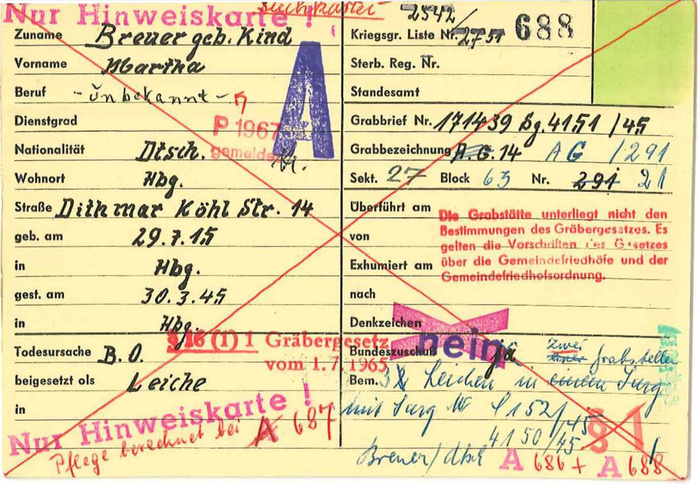 Nur Hinweiskarte !
Suchkartei
Zuname Breuer geb. Kind
Vorname Martha
Beruf - unbekannt -
Dienstgrad
P 1967
gemeldet
A
Nationalität Dtsch.
Wohnort Hbg.
Straße Dithmar Köhl Str. 14
geb. am 29.7.15
in Hbg.
gest. am 30.3.45
in Hbg.
§ 16 (1) 1 Gräbergesetz
vom 1.7.1965
Todesursache B.O.
beigesetzt als Leiche
in
Nur Hinweiskarte !
Pflege berechnet bei A 687
2542/
Kriegsgr. Liste Nr. 2751 688
Sterb. Reg. Nr.
Standesamt
Grabbrief Nr. 171439 Bg. 4151 /45
Grabbezeichnung A.G. 14 AG /291
Sekt. 27 Block 63 Nr. 291 21
Überführt am
von
Exhumiert am
nach
Die Grabstätte unterliegt nicht den
Bestimmungen des Gräbergesetzes. Es
gelten die Vorschriften des Gesetzes
über die Gemeindefriedhöfe und der
Gemeindefriedhofsordnung.
Denkzeichen
Bundeszuschuß nein ja. zwei Grabstellen
Bem. 3 Leichen in einem Sarg
mit Sarg No 4152/45
4150/45
§ 1
Breuer/
A 686 + A 688